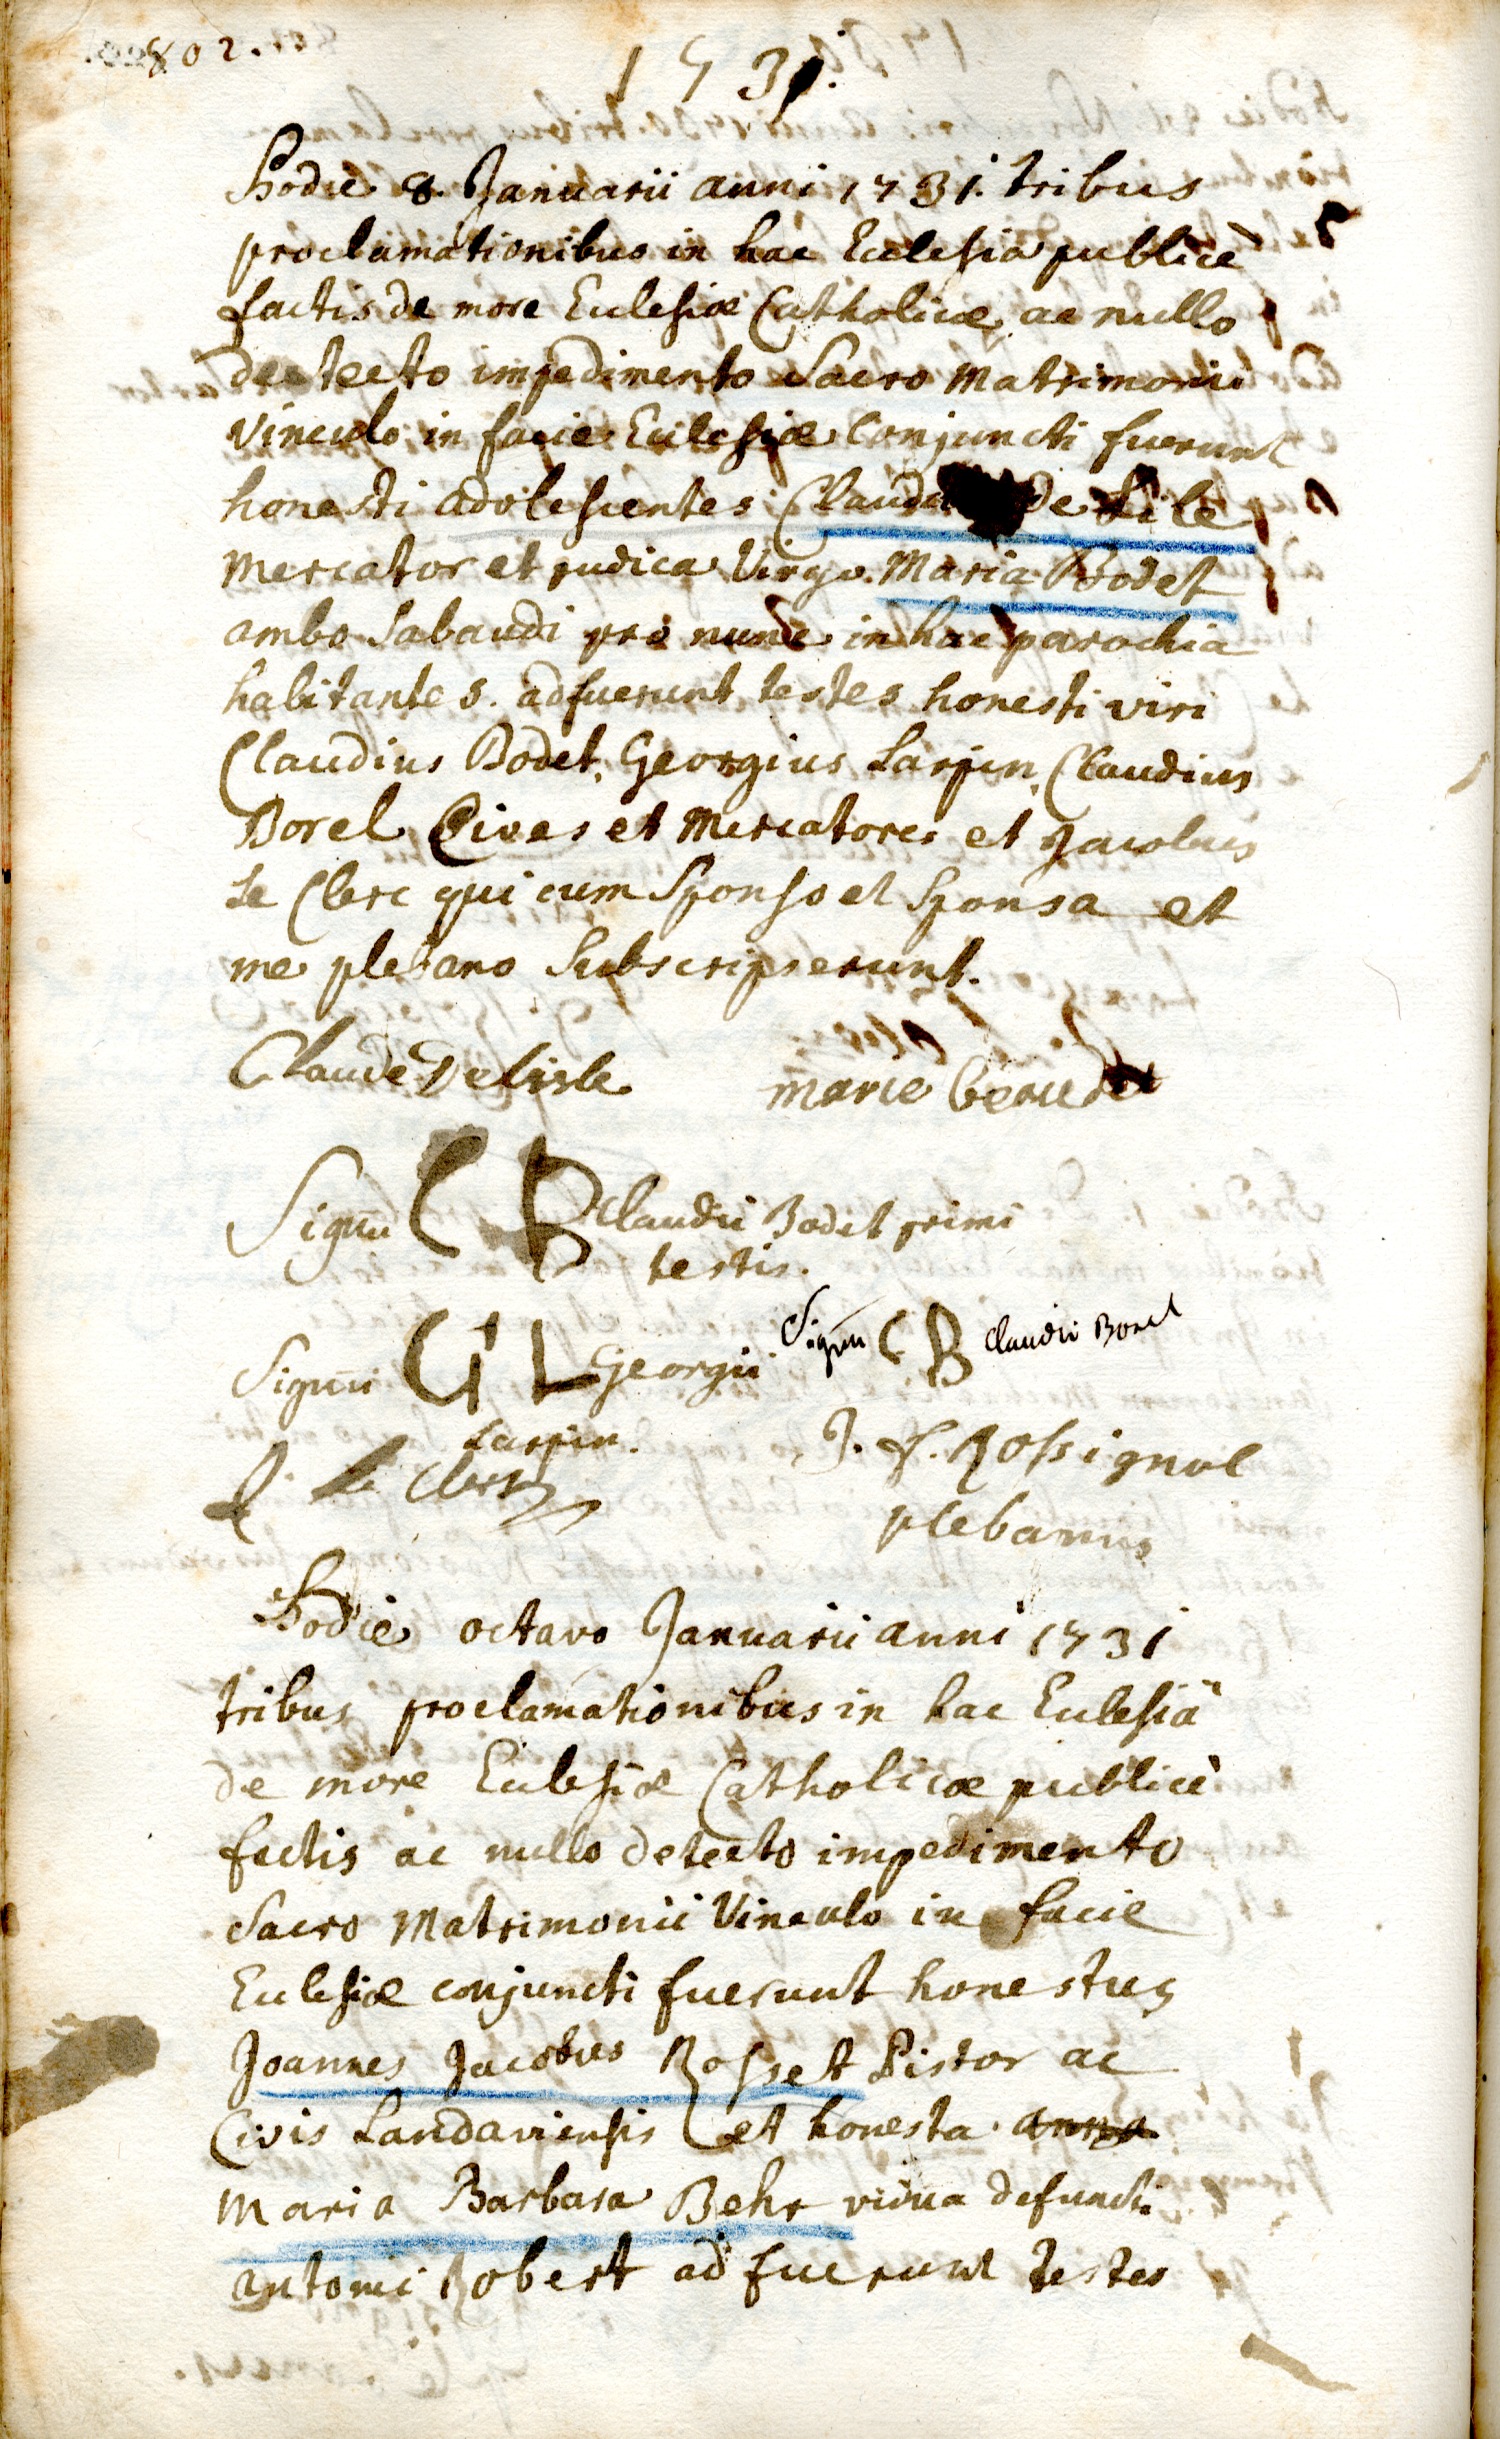 802.
1731.
Hodie 8. Januarii anni 1731. tribus
proclamationibus in hac Ecclesia publicè
factis de more Ecclesiæ Catholicæ ac nullo
detecto impedimento Sacro Matrimonii
Vinculo in facie Ecclesiæ Conjuncti fuerunt
honesti adolescentes Claudius de Lile
Mercator et pudica Virgo Maria Bodet
ambo Sabaudi pro nunc in hac parochia
habitantes. adfuerunt testes honesti viri
Claudius Bodet, Georgius Larpin, Claudius
Borel Cives et Mercatores et Jacobus
le Clerc qui cum Sponso et Sponsa et
me plebano Subscripserunt.
Claude Delisle marie
Signū C B Claudii Bodet primi
testis.
Signū G L Georgii Signū C B Claudii Borel
Larpin. J. f. Rossignol
le Clerc
plebanus
Hodie octavo Januarii anni 1731
tribus proclamationibus in hac Ecclesiâ
de more Ecclesiæ Catholicæ publicè
factis ac nullo detecto impedimento
Sacro Matrimonii Vinculo in facie
Ecclesiæ conjuncti fuerunt honestus
Joannes Jacobus Rosset Pistor ac
Civis Landaviensis et honesta anna
Maria Barbara Behr vidua defuncti
antonii Robert adfuerunt testes